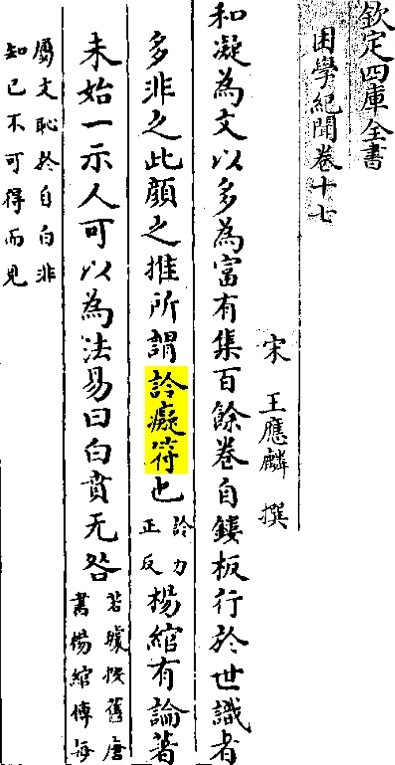 欽定四庫全書
困學紀聞卷十七
宋 王應麟 撰
和凝為文以多為富有集百餘卷自鏤板行於世識者
多非之此顔之推所謂詅癡符也詅力正反楊綰有論著
未始一示人可以為法易曰白賁无咎若璩按舊唐書楊綰傳每
屬文恥於自白非知已不可得而見